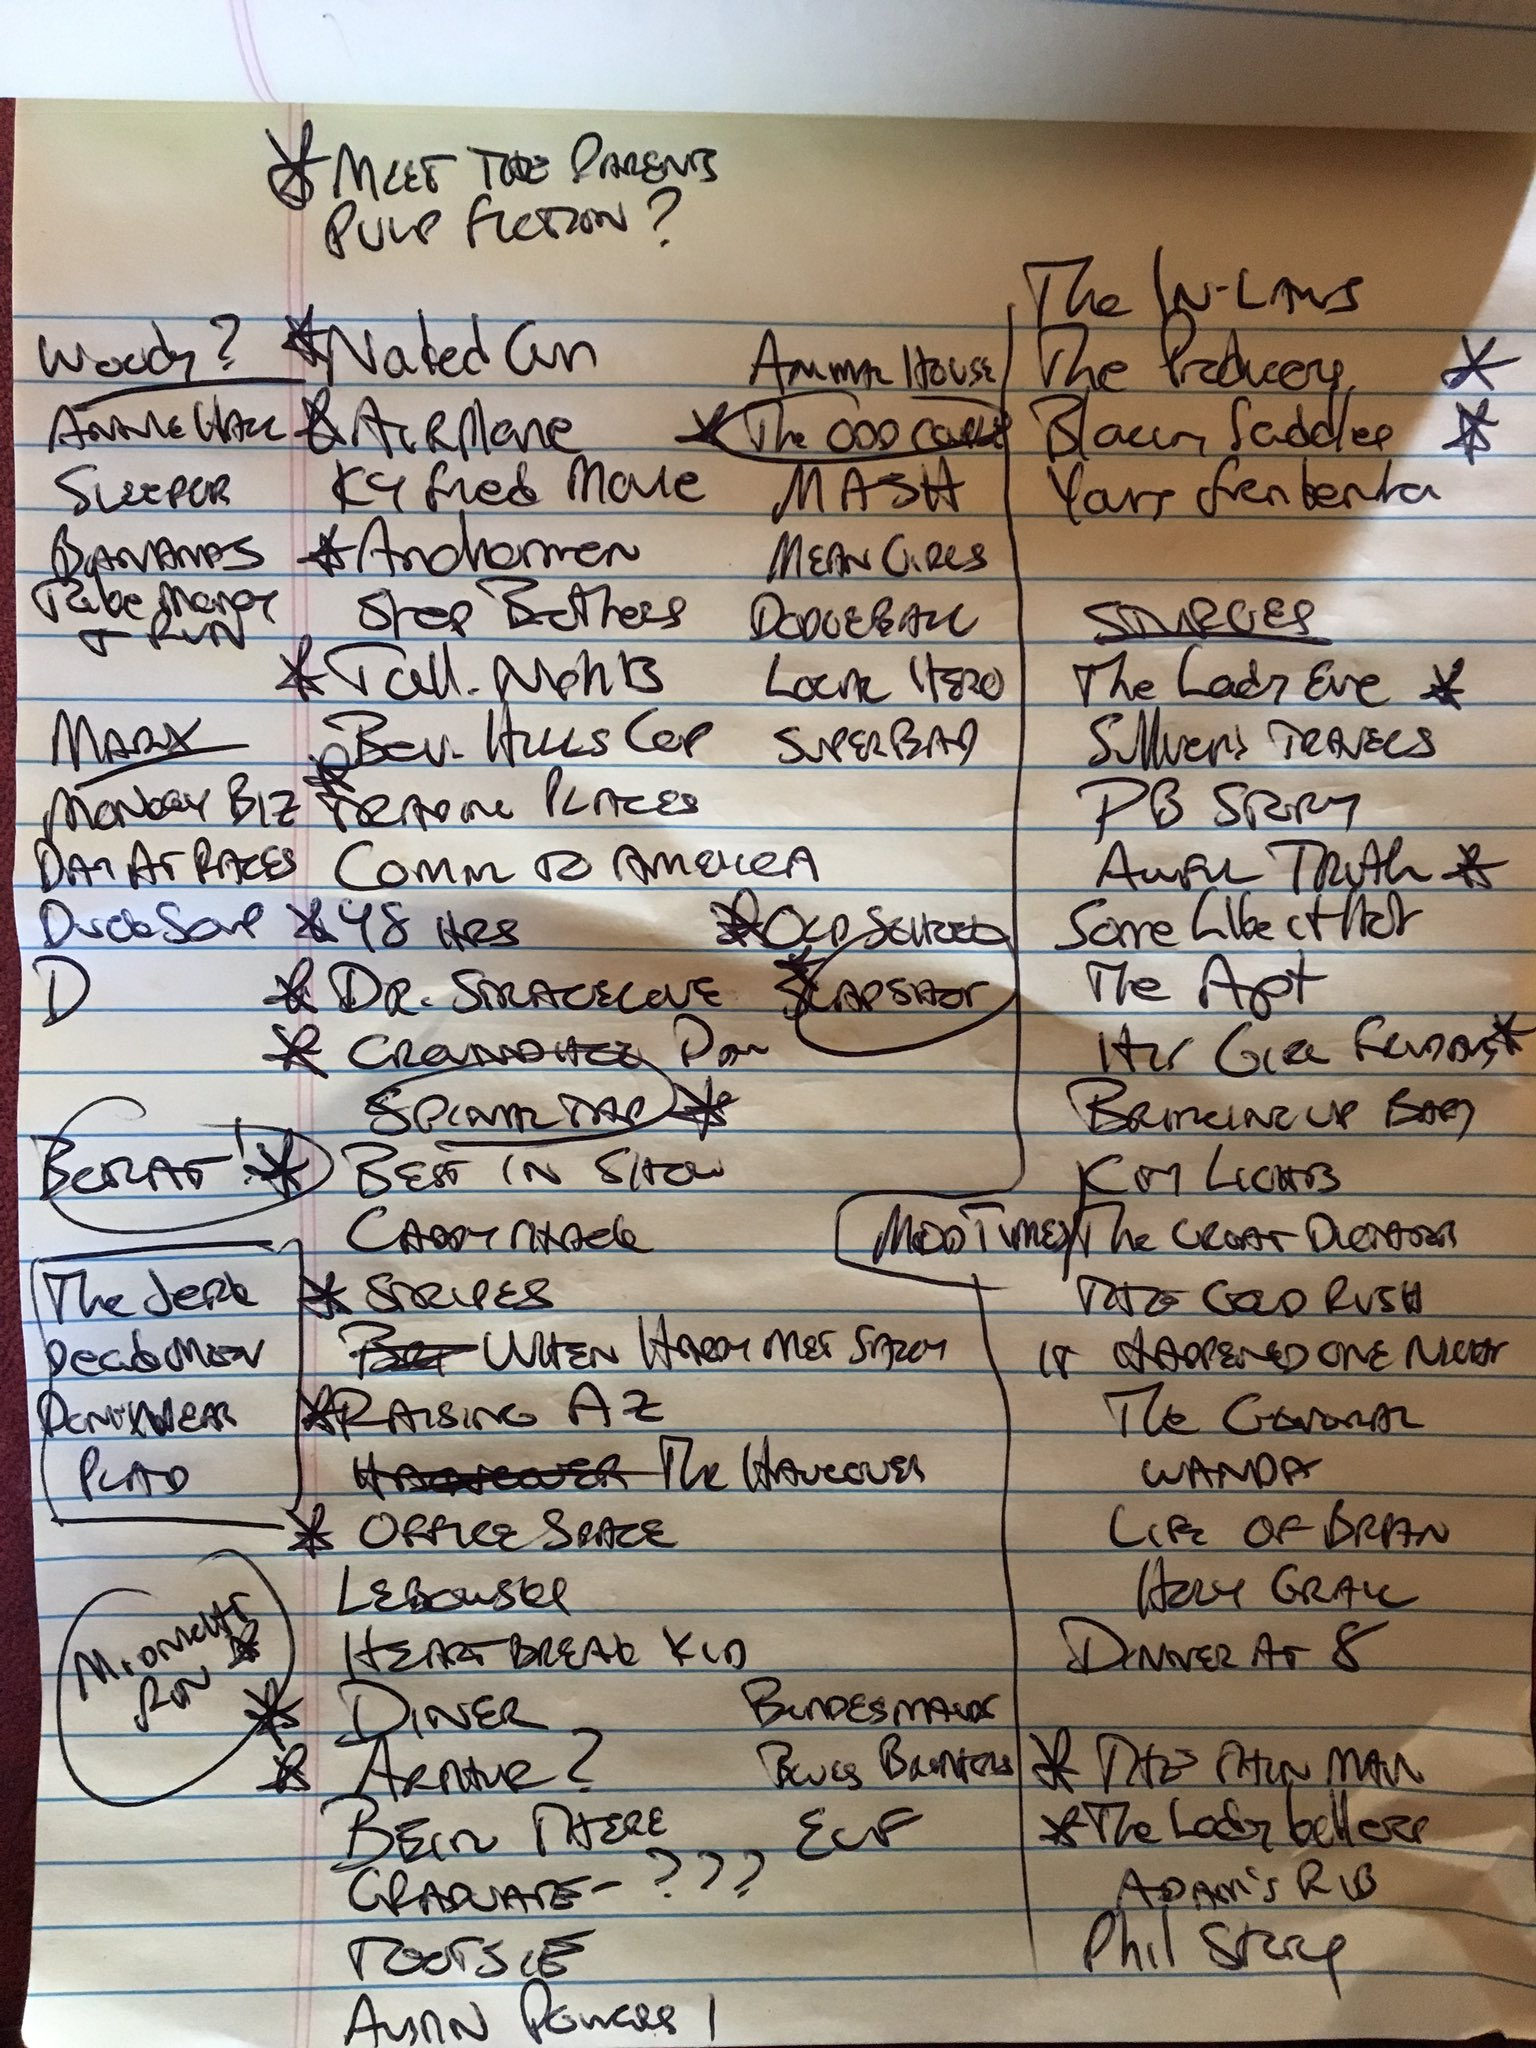 MEET THE PARENTS
PULP FICTION?
Woody?
ANNIE HALL
SLEEPER
BANANAS
Take Money
+ RUN
MARX
MONKEY BIZ
DAY AT RACES
Duck Soup
D
BORAT!
The Jerk
Dead Men
DON'T WEAR
PLAID
MIDNIGHT
RUN
Naked Gun
AIRPlane
KY Fried Movie
Anchormen
Step Brothers
Tall. Nights
Bev. HILLS Cop
TRADING PLACES
COMING TO AMERICA
48 HRS
DR. STRANGELOVE
GROUNDHOG DAY
SPINAL TAP
BEST IN SHOW
CADDYSHACK
STRIPES
WHEN HARRY MET SALLY
RAISING AZ
HANGOVER THE HANGOVER
OFFICE SPACE
LEBOWSKI
HEARTBREAK KID
DINER
ARTHUR?
BEING THERE
GRADUATE - ???
TOOTSIE
AUSTIN POWERS 1
ANIMAL HOUSE
The ODD COUPLE
MASH
MEAN GIRLS
DODGEBALL
LOCAL HERO
SUPERBAD
OLD SCHOOL
SLAPSHOT
MOD TIMES
BRIDESMAIDS
BLUES BROTHERS
ELF
The IN-LAWS
The Producers
Blazing Saddles
Young Frankenstein
STURGES
The Lady Eve
Sullivan's TRAVELS
PB STORY
AWFUL TRUTH
Some Like it Hot
The Apt
HIS GIRL FRIDAY
BRINGING UP BABY
CITY LIGHTS
The GREAT DICTATOR
THE GOLD RUSH
IT HAPPENED ONE NIGHT
THE GENERAL
WANDA
LIFE OF BRIAN
HOLY GRAIL
DINNER AT 8
THE THIN MAN
The Ladykillers
ADAM'S RIB
Phil Story